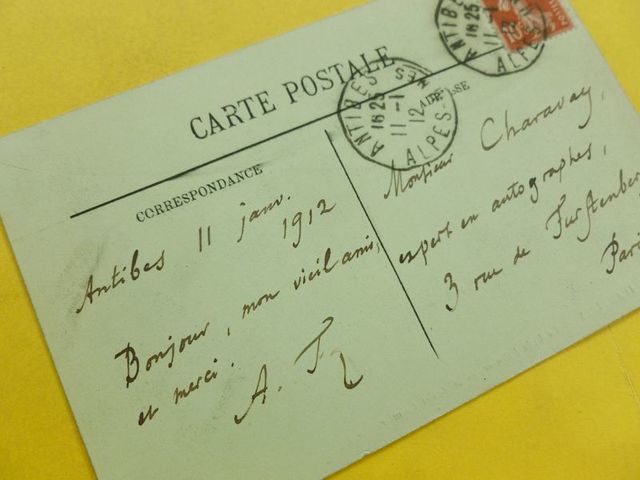 CARTE POSTALE
CORRESPONDANCE
ADRESSE
ANTIBES
16 25
11-1
12
ALPES-MES
ANTIBES
16 25
11-1
ALPES-M
10
Antibes 11 janv.
1912
Bonjour, mon vieil ami,
et merci.
A. F
Monsieur Charavay,
expert en autographes,
3 rue de Furstenber
Pari